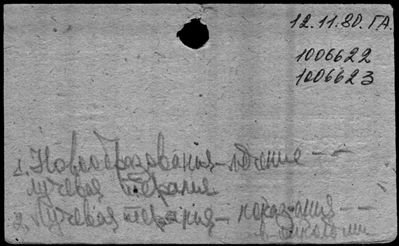 12.11.80. ГА.
1006622
1006623
1. Новообразования - лечение - -
лучевая терапия
2. Лучевая терапия - показания - -
в онкологии